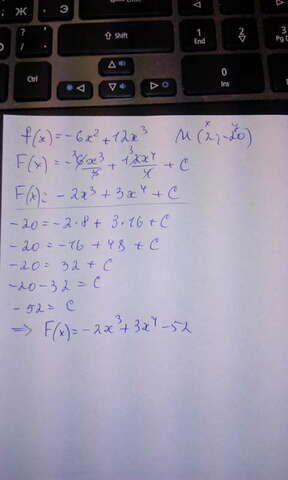 Ж Э Shift
1 End 2 3 Pg D
Ctrl 0 Ins
f(x) = -6x² + 12x³ M (2; -20)
x y
F(x) = -6x³/3 + 12x⁴/4 + C
F(x) = -2x³ + 3x⁴ + C
-20 = -2·8 + 3·16 + C
-20 = -16 + 48 + C
-20 = 32 + C
-20 - 32 = C
-52 = C
=> F(x) = -2x³ + 3x⁴ - 52